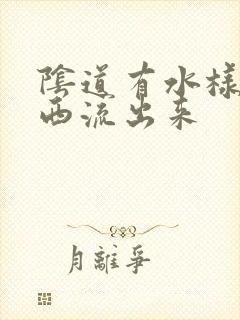 陰道有水樣
西流出来
月離爭